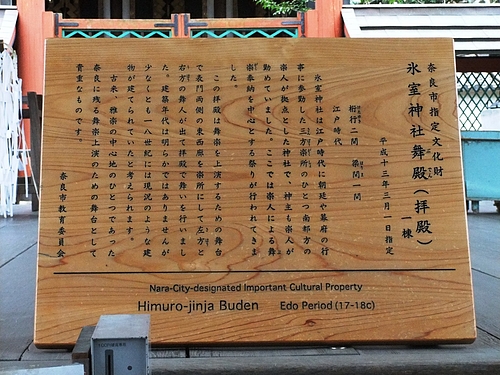 奈良市指定文化財
氷室神社舞殿(拝殿) 一棟
平成十三年三月一日指定
桁行二間 梁間一間
江戸時代
氷室神社は江戸時代に朝廷や幕府の行
事に参勤した三方楽所のひとつ南都方の
楽人が拠点とした神社で、神主も楽人が
勤めていました。ここでは楽人による舞
楽奉納を中心とする祭りが行われてきま
した。
この拝殿は舞楽を上演するための舞台
で表門両側の東西廊を楽所にして左方と
右方の楽人が出て拝殿で舞いを行いまし
た。建築年代は明らかではありませんが
少なくとも十八世紀には現況のような建
物が建てられていたと考えられます。
古来、雅楽の中心地のひとつであった
奈良に残る舞楽上演のための舞台として
貴重なものです。
奈良市教育委員会
Nara-City-designated Important Cultural Property
Himuro-jinja Buden Edo Period (17-18c)